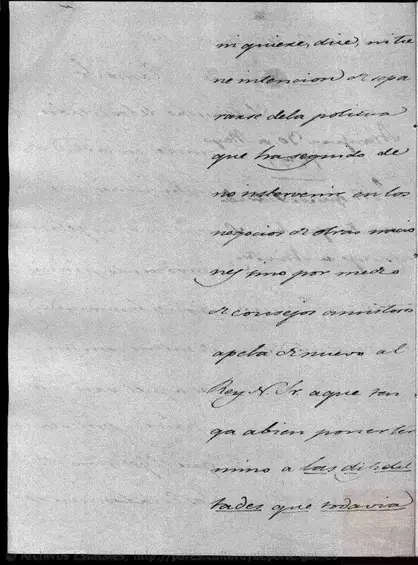 ni quiere, dice, ni tie
ne intencion de sepa
rarse de la politica
que ha seguido de
no intervenir en los
negocios de otras nacio
nes sino por medio
de consejos amistosos
apela de nuevo al
Rey N. Sr. a que ten
ga a bien poner ter
mino a las dificul
tades que todavia